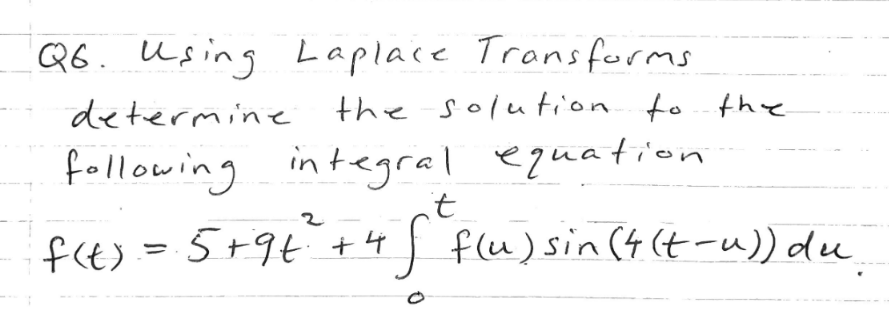 Q6. Using Laplace Transforms
determine the solution to the
following integral equation
f(t) = 5+9t² + 4∫₀ᵗ f(u) sin(4(t-u)) du.